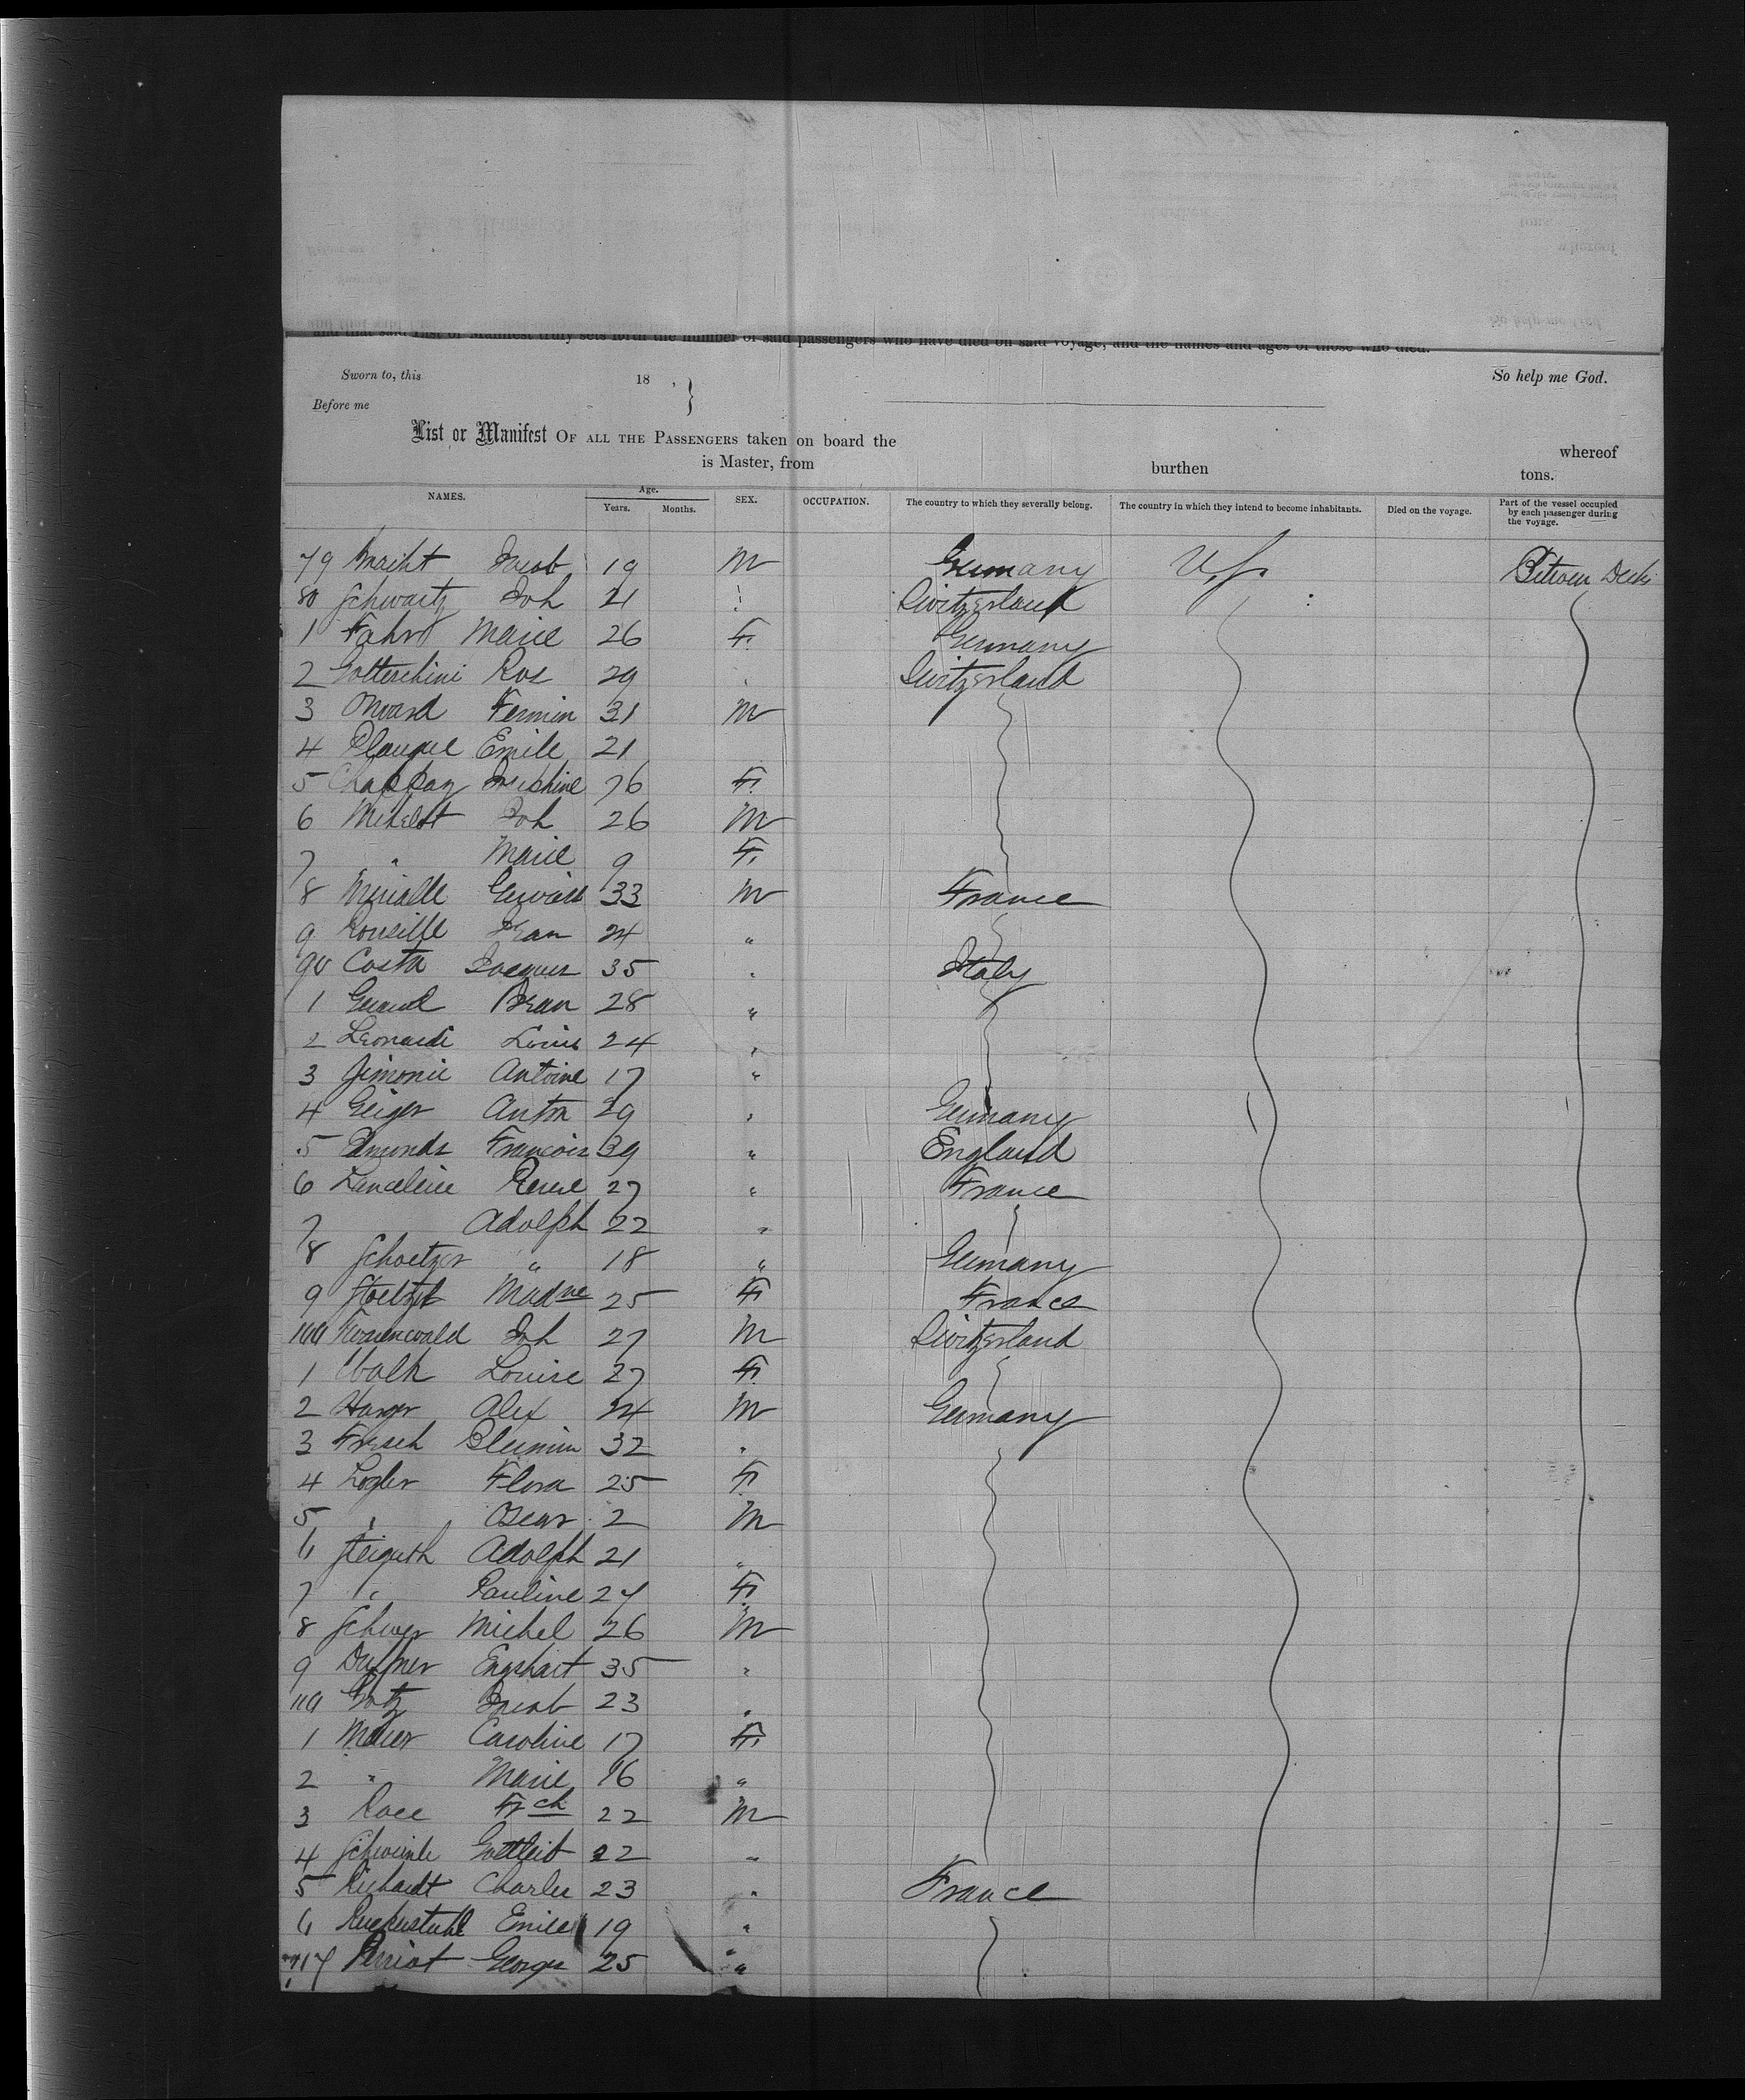 and that said List or Manifest truly sets forth the number of said passengers who have died on said voyage, and the names and ages of those who died.
Sworn to, this 18 , } So help me God.
Before me
List or Manifest OF ALL THE PASSENGERS taken on board the whereof
is Master, from burthen tons.
NAMES. Age. Years. Months. SEX. OCCUPATION. The country to which they severally belong. The country in which they intend to become inhabitants. Died on the voyage. Part of the vessel occupied by each passenger during the voyage.
79 Jacob 19 M Germany U.S. Between Decks
80 Schwartz Joh 21 Switzerland
1 Fahr Marie 26 F. Germany
2 Ros 29 Switzerland
3 Fermin 31 M
4 Emile 21
5 Chappaz Josephine 26 F.
6 Joh 26 M
7 " Marie 9 F.
8 33 M France
9 Jean 24 "
90 Costa Jacques 35 " Italy
1 Jean 28 "
2 Leonardi Louis 24 "
3 Simonie Antoine 17 "
4 Geiger Anton 29 " Germany
5 Edmonds Francois 39 " England
6 27 " France
7 Adolph 22 "
8 Schoetzer " 18 " Germany
9 Madne 25 F France
100 Joh 27 M Switzerland
1 Walk Louise 27 F.
2 Alex 24 M Germany
3 Fresch 32 "
4 Flora 25 F.
5 " Oscar 2 M
6 Adolph 21 "
7 " Pauline 24 F.
8 Michel 26 M
9 Duffner 35 "
110 Gotz Jacob 23 "
1 Meier Caroline 17 F.
2 " Marie 16 "
3 Frch 22 M
4 Gottleib 22 "
5 Richardt Charles 23 " France
6 Ruckustuhl Emile 19 "
117 Perriot Georges 25 "